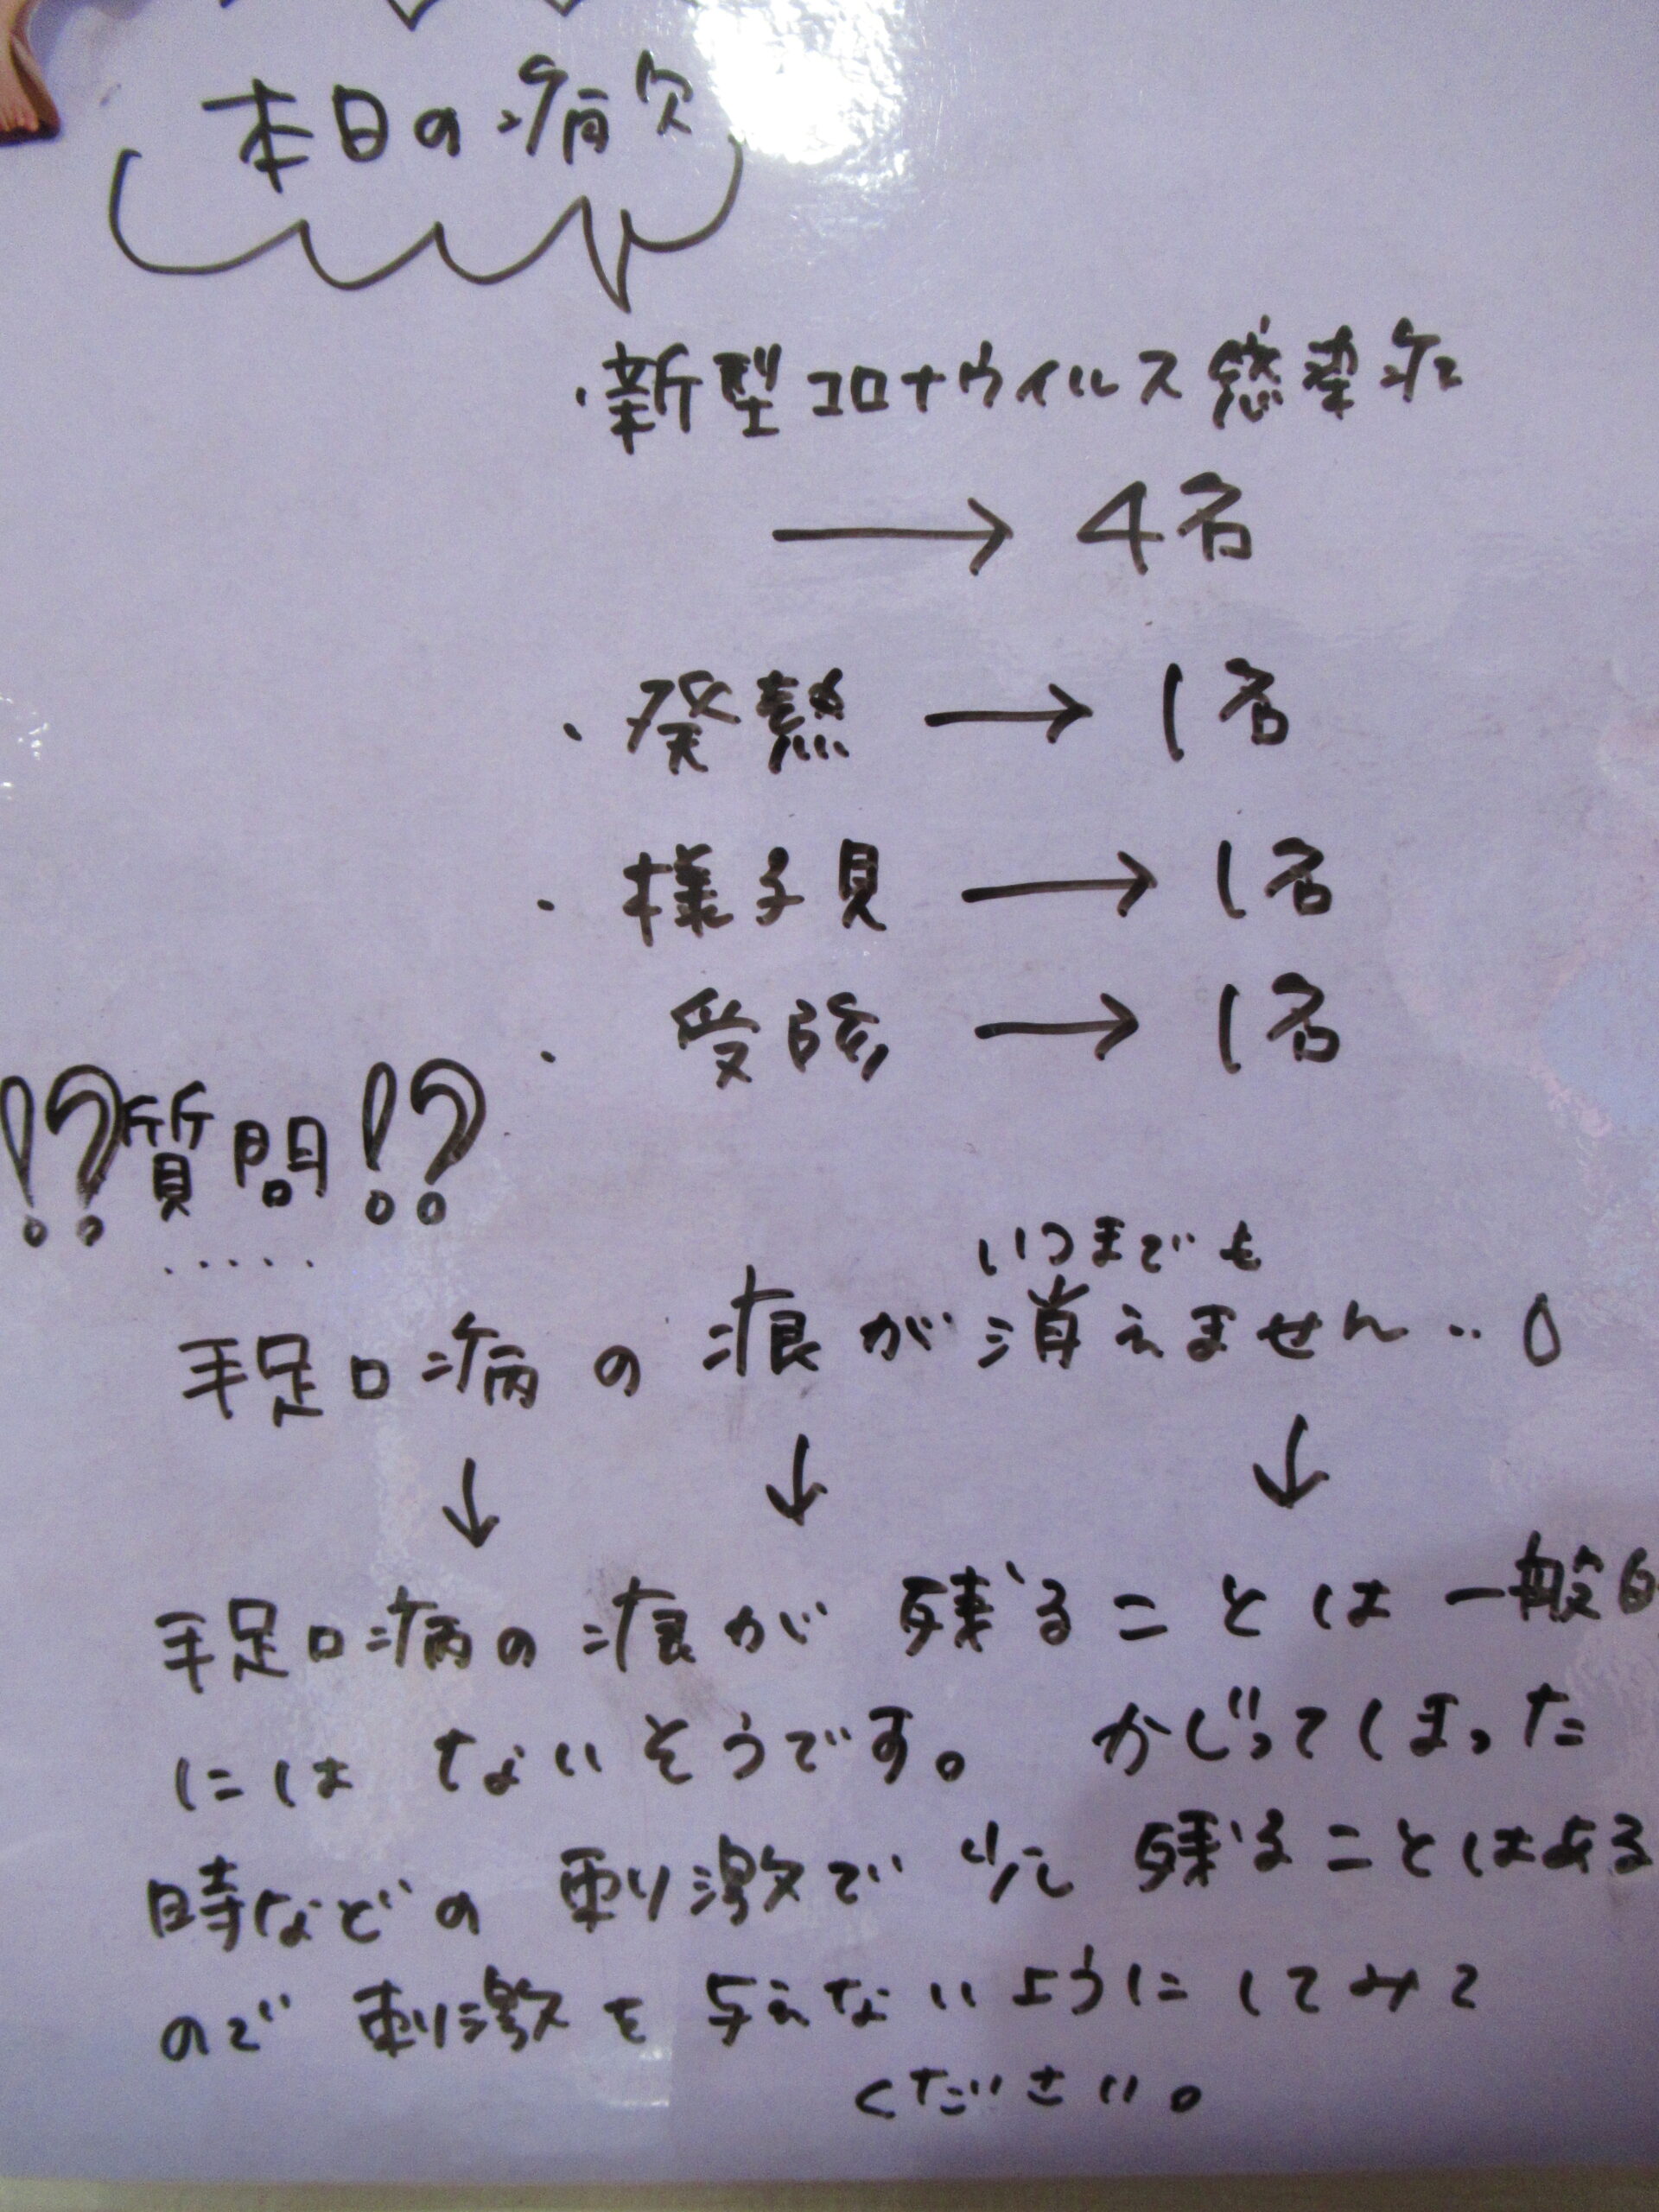 本日の病欠
・新型コロナウイルス感染症
→ 4名
・発熱 → 1名
・様子見 → 1名
・受診 → 1名
!?質問!?
いつまでも
手足口病の痕が消えません‥。
↓ ↓ ↓
手足口病の痕が残ることは一般的
にはないそうです。かじってしまった
時などの刺激で少し残ることはある
ので刺激を与えないようにしてみて
ください。